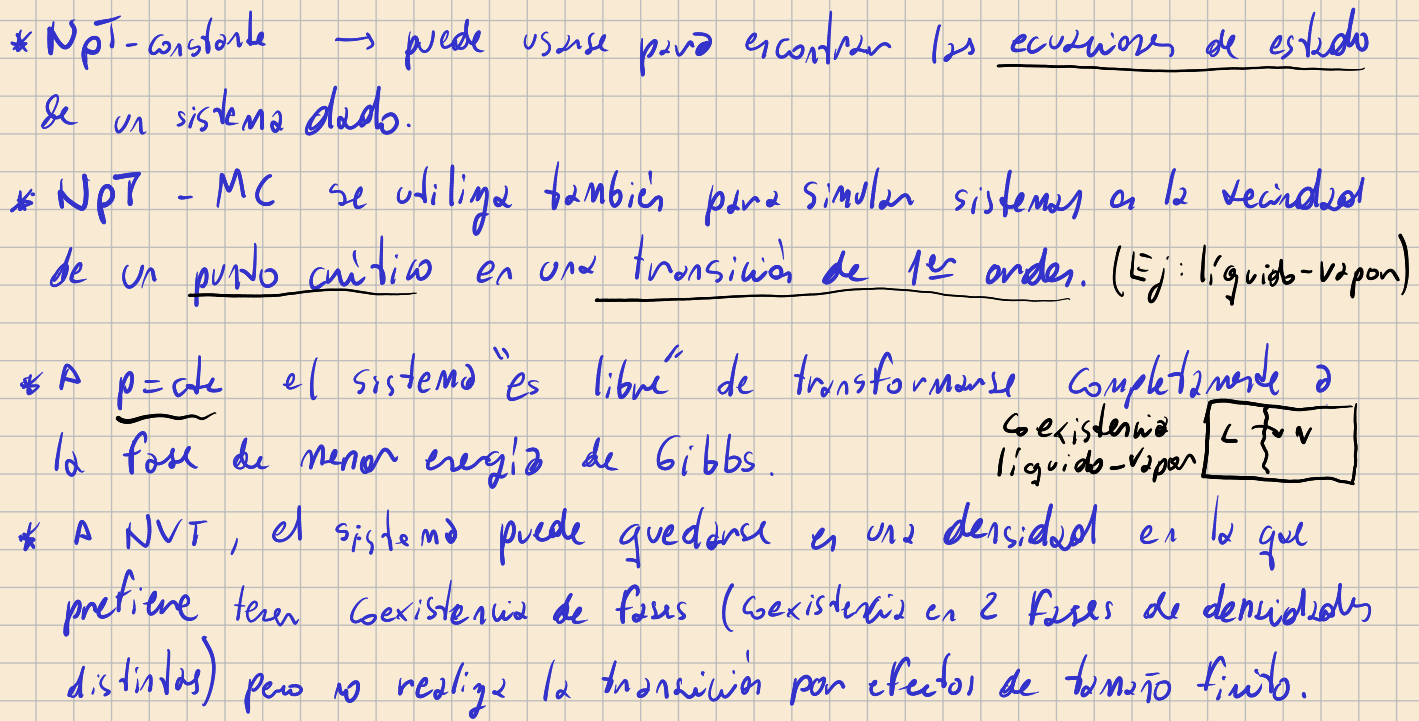 * NpT-constante → puede usarse para encontrar las ecuaciones de estado
de un sistema dado.
* NpT - MC se utiliza también para simular sistemas en la vecindad
de un punto crítico en una transición de 1er orden. (Ej: líquido-vapor)
* A p=cte el sistema "es libre" de transformarse completamente a
la fase de menor energía de Gibbs.
coexistencia
líquido-vapor
L V
* A NVT, el sistema puede quedarse en una densidad en la que
prefiere tener coexistencia de fases (coexistencia en 2 fases de densidades
distintas) pero no realiza la transición por efectos de tamaño finito.